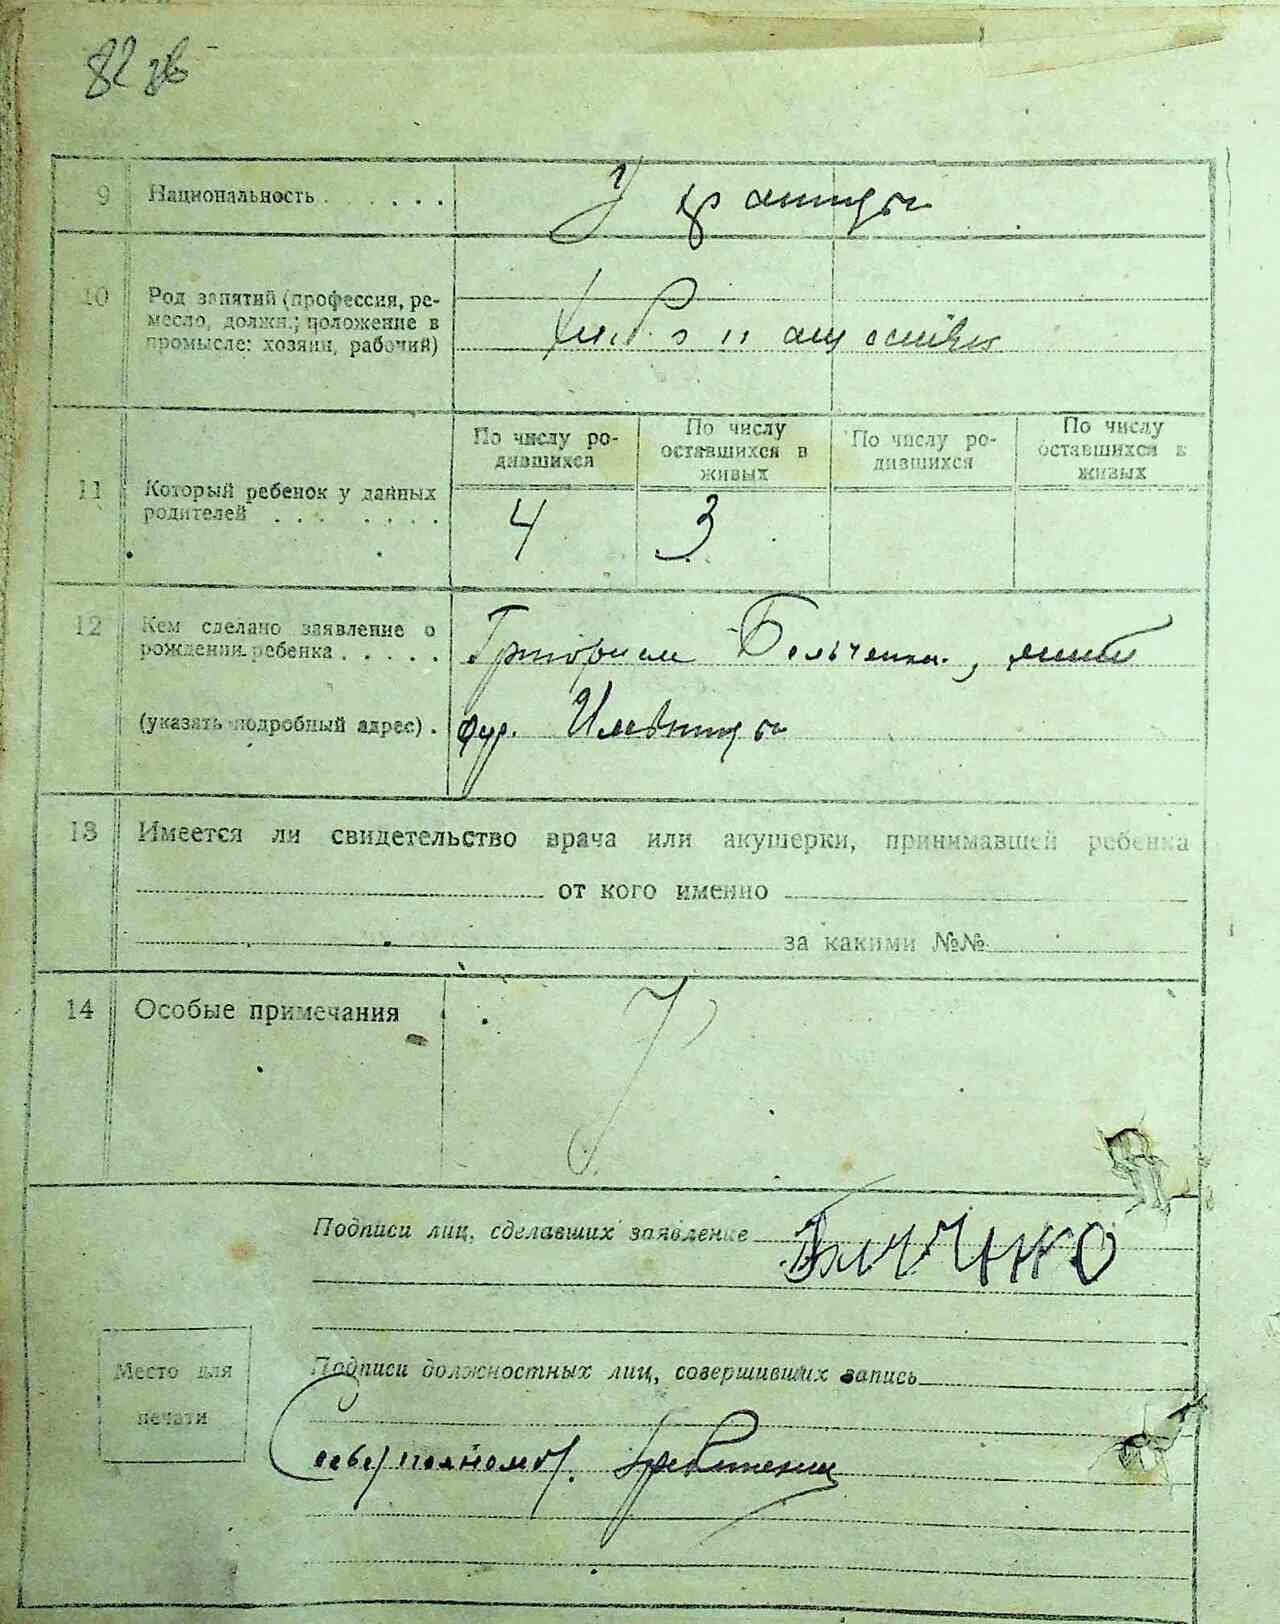 82 зв
9 Национальность . . . . . .
Украинцы
10 Род занятий (профессия, ре-
месло, должн.; положение в
промысле: хозяин, рабочий)
11 Который ребенок у данных
родителей . . . . . . .
По числу ро-
дившихся
По числу
оставшихся в
живых
По числу ро-
дившихся
По числу
оставшихся в
живых
4 3
12 Кем сделано заявление о
рождении ребенка . . . . .
Григорием Бельченко,
(указать подробный адрес) .
хут.
13 Имеется ли свидетельство врача или акушерки, принимавшей ребенка
от кого именно
за какими №№
14 Особые примечания
Подписи лиц, сделавших заявление
Место для
печати
Подписи должностных лиц, совершивших запись